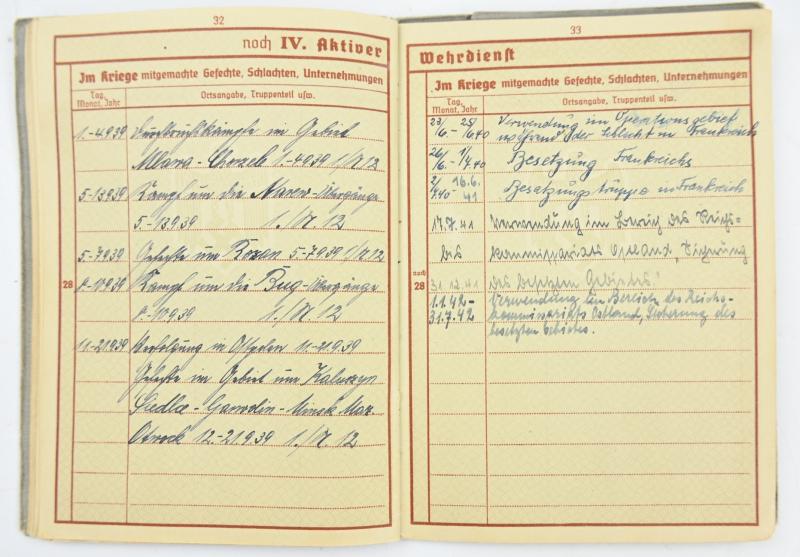 32
noch IV. Aktiver
Im Kriege mitgemachte Gefechte, Schlachten, Unternehmungen
Tag, Monat, Jahr
Ortsangabe, Truppenteil usw.
28
1.-4.9.39 Durchbruchskämpfe im Gebiet
Mlawa - Chorzele 1.-4.9.39
5.-13.9.39 Kampf um die Narew-Übergänge
5.-13.9.39
5.-7.9.39 Gefechte um Rozan 5.-7.9.39
Kampf um die Bug-Übergänge
Verfolgung in Ostpolen
Gefechte im Gebiet um Kaluszyn
Siedlce - Garwolin - Minsk Maz.
Otwock 12.-21.9.39
33
Wehrdienst
Im Kriege mitgemachte Gefechte, Schlachten, Unternehmungen
Tag, Monat, Jahr
Ortsangabe, Truppenteil usw.
noch 28
Verwendung im Operationsgebiet
während der Schlacht in Frankreich
Besetzung Frankreichs
Besatzungstruppe in Frankreich
17.7.41 Verwendung im Bereich des Reichs-
bis kommissariats Ostland, "Sicherung
31.12.41 des besetzten Gebietes."
1.1.42- Verwendung im Bereich des Reichs-
31.7.42 kommissariats Ostland, Sicherung des
besetzten Gebietes.